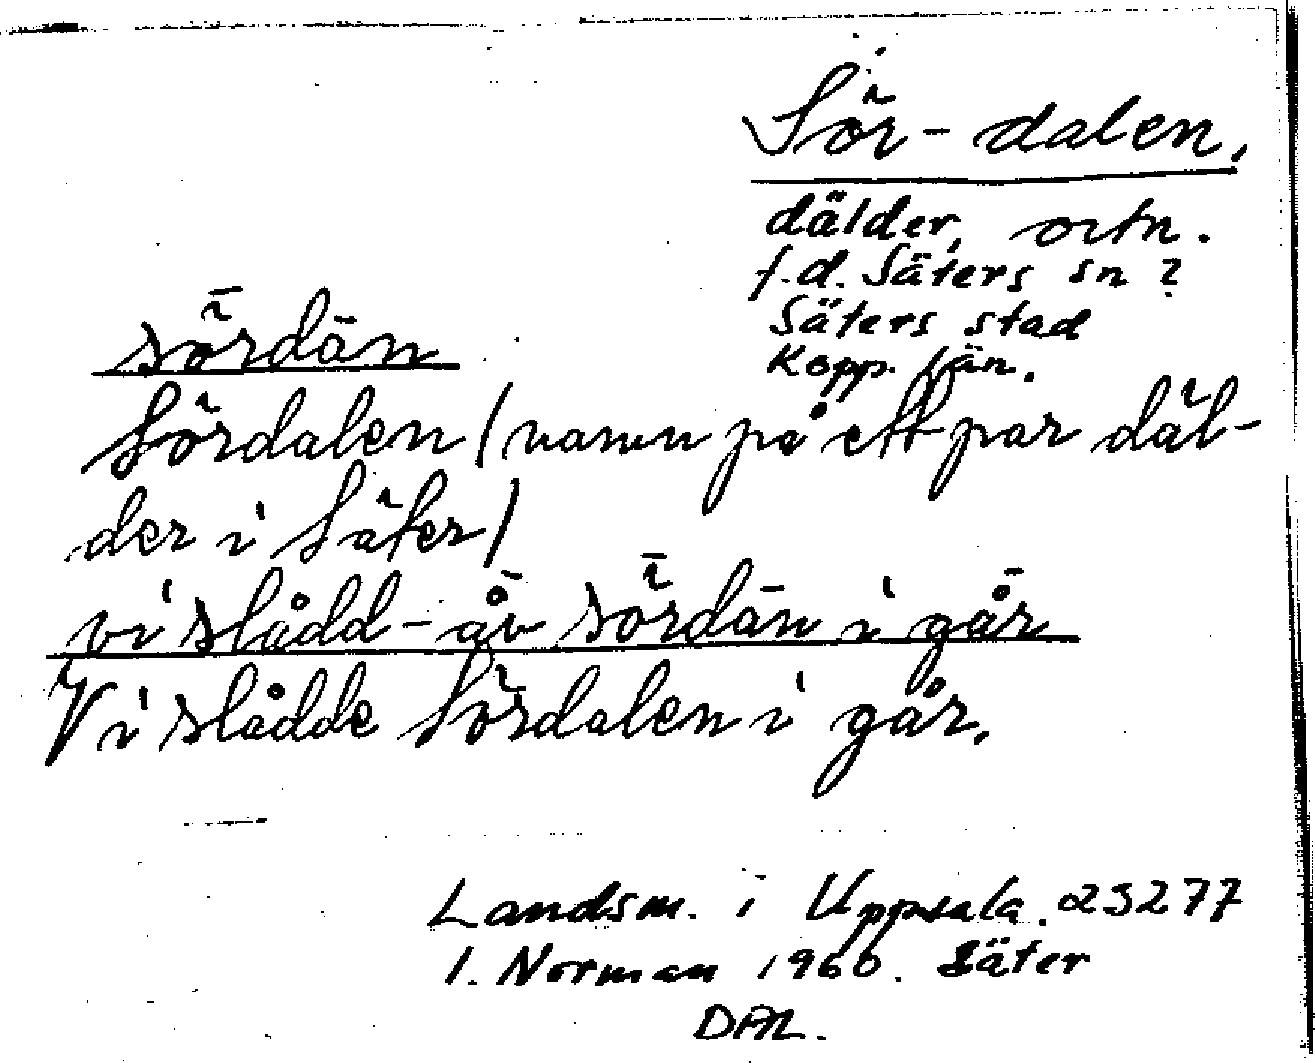 Sör-dalen,
dälder, ortn.
f.d. Säters sn?
Säters stad
Kopp. län.
sȫrdān
Sördalen (namn på ett par däl-
der i Säter)
vi slådd-å̄v sȫrdān i gå̄r
Vi slådde Sördalen i går.
Landsm. i Uppsala. 23277
I. Norman 1960. Säter
DAL.